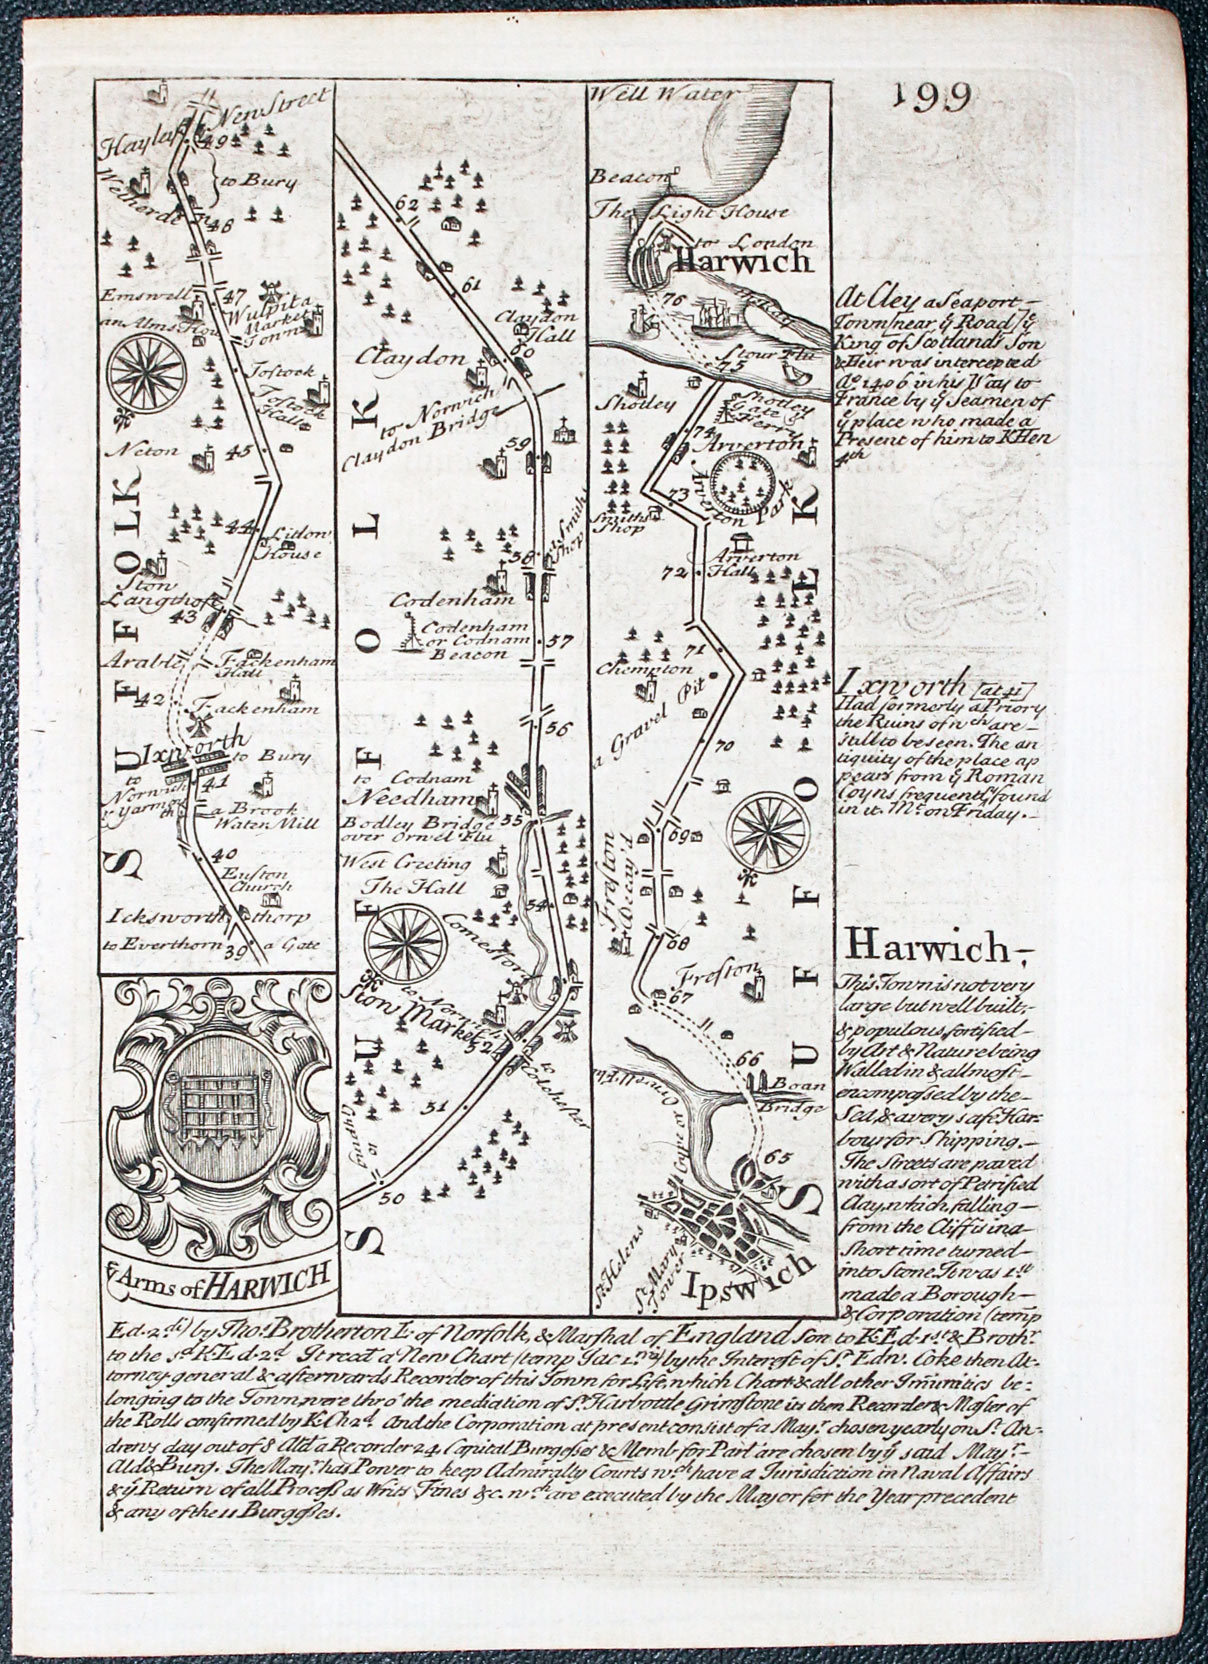 199
New Street
Hayley
49
Wetherde
to Bury
48
Emswell
47
an Alms Hou
Wulpit a
Market
Town
Tostock
Tostock
Hall
Neton
45
44
Litlon
House
Ston
Langthoft
43
Arable
Fackenham
Hall
42
Fackenham
Ixworth
to Bury
to
Norwich
& Yarmo
th
41
a Brook
Water Mill
40
Euston
Church
Icksworth thorp
to Everthorn
39
a Gate
SUFFOLK
ẙ Arms of HARWICH
62
61
Claydon
Hall
60
Claydon
to Norwich
Claydon Bridge
59
a Smiths
Shop
58
Codenham
Codenham
or Codnam
Beacon
57
56
to Codnam
Needham
55
Bodley Bridge
over Orwel Flu
West Creeting
The Hall
54
Comesford
to Norwich
Stow Market
52
to
Colchester
51
to
50
SUFFOLK
Well Water
Beacon
The Light House
to London
Harwich
76
Stour Flu
75
Shotley
Shotley
Gate &
Ferry
74
Arverton
Arverton Park
73
Smiths
Shop
Arverton
Hall
72
71
Chempton
a Gravel Pit
70
69
Freston
Decay'd
68
Freston
67
66
Boan
Bridge
65
St. Helens
St. Mary
Tower
Ipswich
SUFFOLK
At Cley a Seaport
Town [near ẙ Road] ẙ
King of Scotlands Son
& Heir was intercepted
Ao. 1406 in his Way to
France by ẙ Seamen of
ẙ place who made a
Present of him to K Hen
4th
Ixworth [at 41]
Had formerly a Priory
the Ruins of wch are
still to be seen. The an
tiquity of the place ap
pears from ẙ Roman
Coyns frequently found
in it. Mt. on Friday.
Harwich
This Town is not very
large but well built,
& populous, fortified
by Art & Nature being
Walled in & allmost
encompassed by the
Sea, & a very safe Har
bour for Shipping.
The Streets are paved
with a sort of Petrified
Clay, which falling
from the Cliff is in a
short time turned
into Stone. It was 1st
made a Borough
& Corporation (temp
Ed. 2di) by Tho. Brotherton E. of Norfolk, & Marshal of England Son to K. Ed. 1st & Brothr.
to the sd K Ed. 2d It recd a New Chart (temp Jac 1mi) by the Interest of Sr. Edw. Coke then At-
torney general & afterwards Recorder of this Town for Life, which Chart & all other Immunities be-
longing to the Town, were thro' the mediation of Sr. Harbottle Grimstone its then Recorder & Master of
the Rolls confirmed by K. Ch 2d. And the Corporation at present consist of a Mayr. chosen yearly on St. An-
drews day out of 8 Ald a Recorder 24 Capital Burgesses & Memb for Part are chosen by ẙ said Mayr.
Ald & Burg. The Mayr. has Power to keep Admiralty Courts wch have a Jurisdiction in Naval Affairs
& ẙ Return of all Process as Writs Fines &c. wch are executed by the Mayor for the Year precedent
& any of the 11 Burgesses.